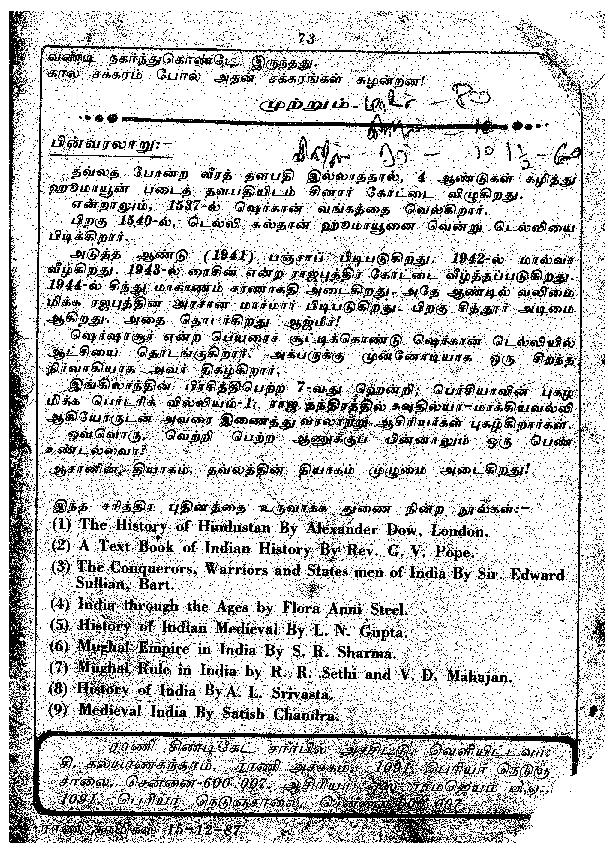 73
வண்டி நகர்ந்துகொண்டே இருந்தது.
கால சக்கரம் போல் அதன் சக்கரங்கள் சுழன்றன!
முற்றும்
பின்வரலாறு:-
தவ்லத் போன்ற வீரத் தளபதி இல்லாததால், 4 ஆண்டுகள் கழித்து
ஹூமாயூன் படைத் தளபதியிடம் சினார் கோட்டை விழுகிறது.
என்றாலும், 1537-ல் ஷெர்கான் வங்கத்தை வெல்கிறார்.
பிறகு 1540-ல், டெல்லி சுல்தான் ஹூமாயூனை வென்று டெல்லியை
பிடிக்கிறார்.
அடுத்த ஆண்டு (1941) பஞ்சாப் பிடிபடுகிறது. 1942-ல் மால்வா
வீழ்கிறது. 1943-ல் ரைசின் என்ற ராஜபுத்திர கோட்டை வீழ்த்தப்படுகிறது.
1944-ல் சிந்து மாகாணம் சரணாகதி அடைகிறது. அதே ஆண்டில் வலிமை
மிக்க ரஜபுத்தின அரசான மார்வார் பிடிபடுகிறது. பிறகு சித்தூர் அடிமை
ஆகிறது. அதை தொடர்கிறது ஆஜ்மீர்!
ஷெர்ஷாசூர் என்ற பெயரைச் சூட்டிக்கொண்டு ஷெர்கான் டெல்லியில்
ஆட்சியை தொடங்குகிறார். அக்பருக்கு முன்னோடியாக ஒரு சிறந்த
நிர்வாகியாக அவர் திகழ்கிறார்.
இங்கிலாந்தின் பிரசித்திபெற்ற 7-வது ஹென்றி, பெர்சியாவின் புகழ்
மிக்க பெடரிக் வில்லியம்-1, ராஜ தந்திரத்தில் கவுதில்யா-மாக்கியவல்லி
ஆகியோருடன் அவரை இணைத்து வரலாற்று ஆசிரியர்கள் புகழ்கிறார்கள்.
ஒவ்வொரு, வெற்றி பெற்ற ஆணுக்குப் பின்னாலும் ஒரு பெண்
உண்டல்லவா?
ஆசானின் தியாகம், தவ்லத்தின் தியாகம் முழுமை அடைகிறது!
இந்த சரித்திர புதினத்தை உருவாக்க துணை நின்ற நூல்கள்:-
(1) The History of Hindustan By Alexander Dow, London.
(2) A Text Book of Indian History By Rev. G. V. Pope.
(3) The Conquerors, Warriors and States men of India By Sir. Edward
Sullian, Bart.
(4) India through the Ages by Flora Anni Steel.
(5) History of Indian Medieval By L. N. Gupta.
(6) Mughal Empire in India By S. R. Sharma.
(7) Mughal Rule in India by R. R. Sethi and V. D. Mahajan.
(8) History of India By A. L. Srivasta.
(9) Medieval India By Satish Chandra.
ராணி சிண்டிகேட் சார்பில் அச்சிட்டு வெளியிட்டவர்:
ராணி அச்சகம், 1091, பெரியார் நெடுஞ்
சாலை, சென்னை-600 007. ஆசிரியர்:
1091, பெரியார் நெடுஞ்சாலை,
ராணி காமிக்ஸ் 15-12-87